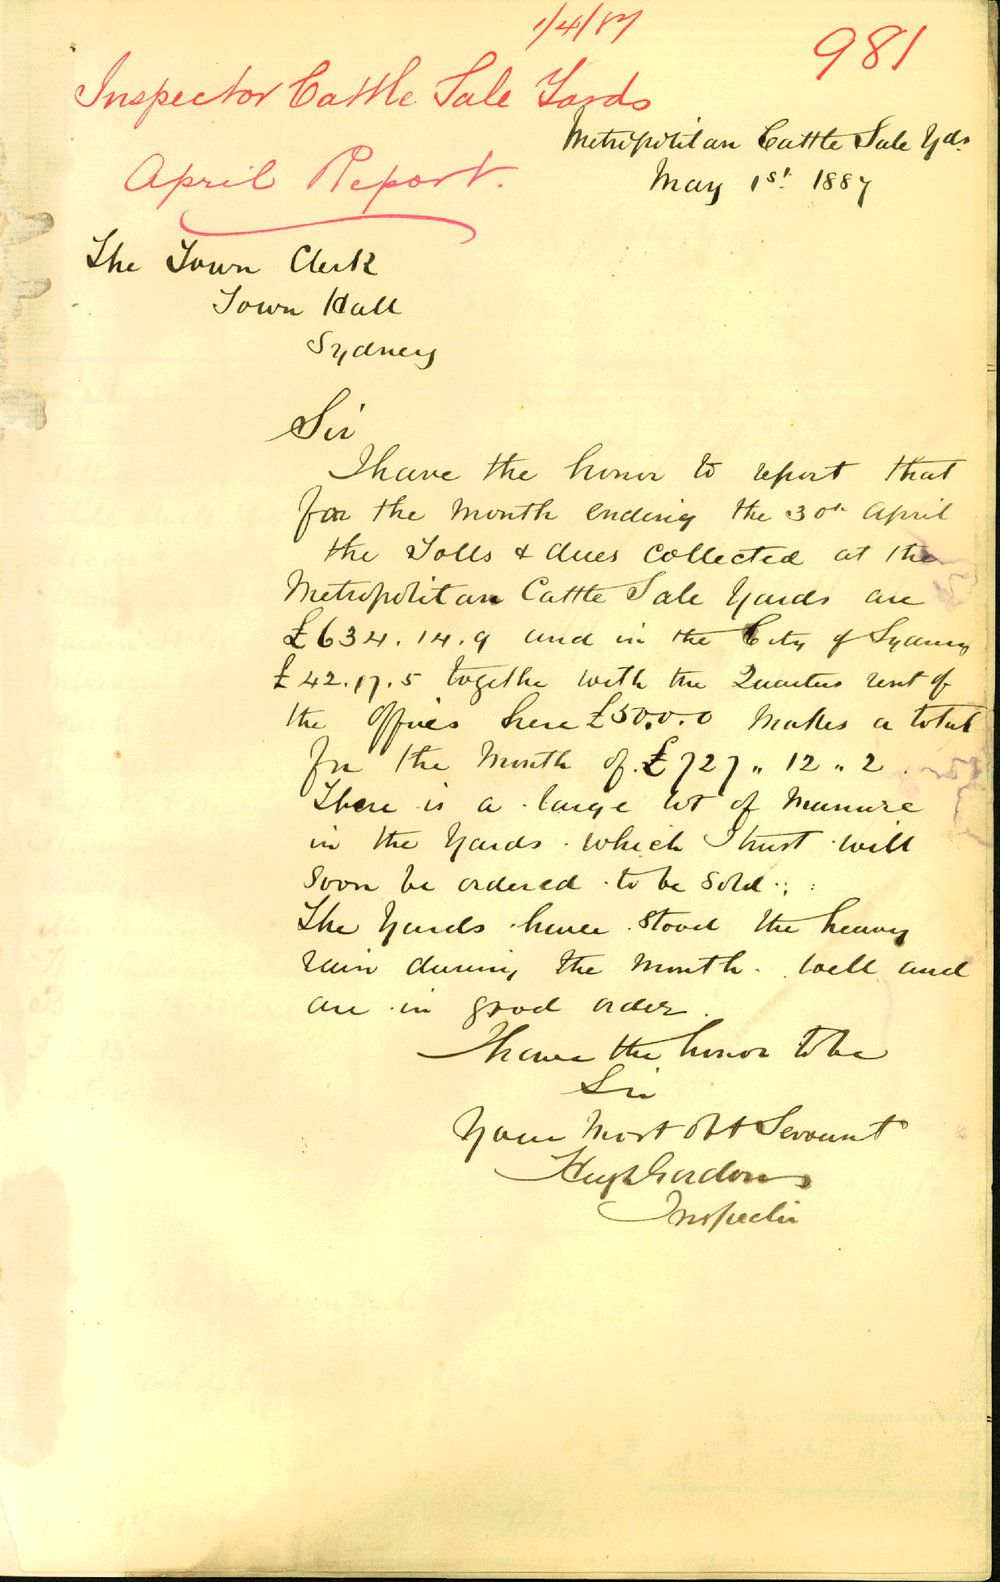 1/4/87
981
Inspector Cattle Sale Yards
Metropolitan Cattle Sale Yds.
April Report.
May 1st. 1887
The Town Clerk
Town Hall
Sydney
Sir
I have the honor to report that
for the Month ending the 30th April
the Tolls & dues collected at the
Metropolitan Cattle Sale Yards are
£634.14.9 and in the City of Sydney
£42.17.5 together with the Quarters rent of
the offices here £50.0.0 Makes a total
for the Month of £727 " 12 " 2.
There is a large lot of Manure
in the Yards which I trust will
soon be ordered to be sold.
The Yards have stood the heavy
rain during the Month. Well and
are in good order.
I have the honor to be
Sir
Your Most Obt Servant
Hugh Gordon
Inspector